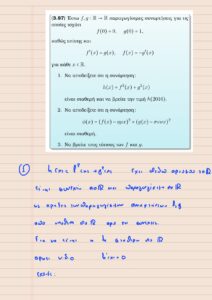 (3.67) Έστω f, g : ℝ → ℝ παραγωγίσιμες συναρτήσεις για τις
οποίες ισχύει
f(0) = 0, g(0) = 1,
καθώς επίσης και
f'(x) = g(x), f'(x) = -g'(x)
για κάθε x ∈ ℝ.
1. Να αποδείξετε ότι η συνάρτηση:
h(x) = f²(x) + g²(x)
είναι σταθερή και να βρείτε την τιμή h(2016).
2. Να αποδείξετε ότι η συνάρτηση:
φ(x) = (f(x) - ημx)² + (g(x) - συνx)²
είναι σταθερή.
3. Να βρείτε τους τύπους των f και g.
①
έχει πεδίο ορισμού το ℝ
είναι συνεχής στο ℝ και παραγωγίσιμη στο ℝ
ως πράξεις παραγωγίσιμων συναρτήσεων f, g
Για να είναι η h σταθερή στο ℝ
αρκεί ν.δ.ο